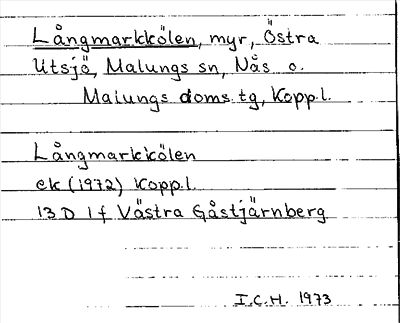 Långmarkkölen, myr, Östra
Utsjö, Malungs sn, Nås o.
Malungs doms.tg, Koppl.
Långmarkkölen
ek (1972) Koppl.
13 D 1 f Västra Gåstjärnberg
I.C.H. 1973